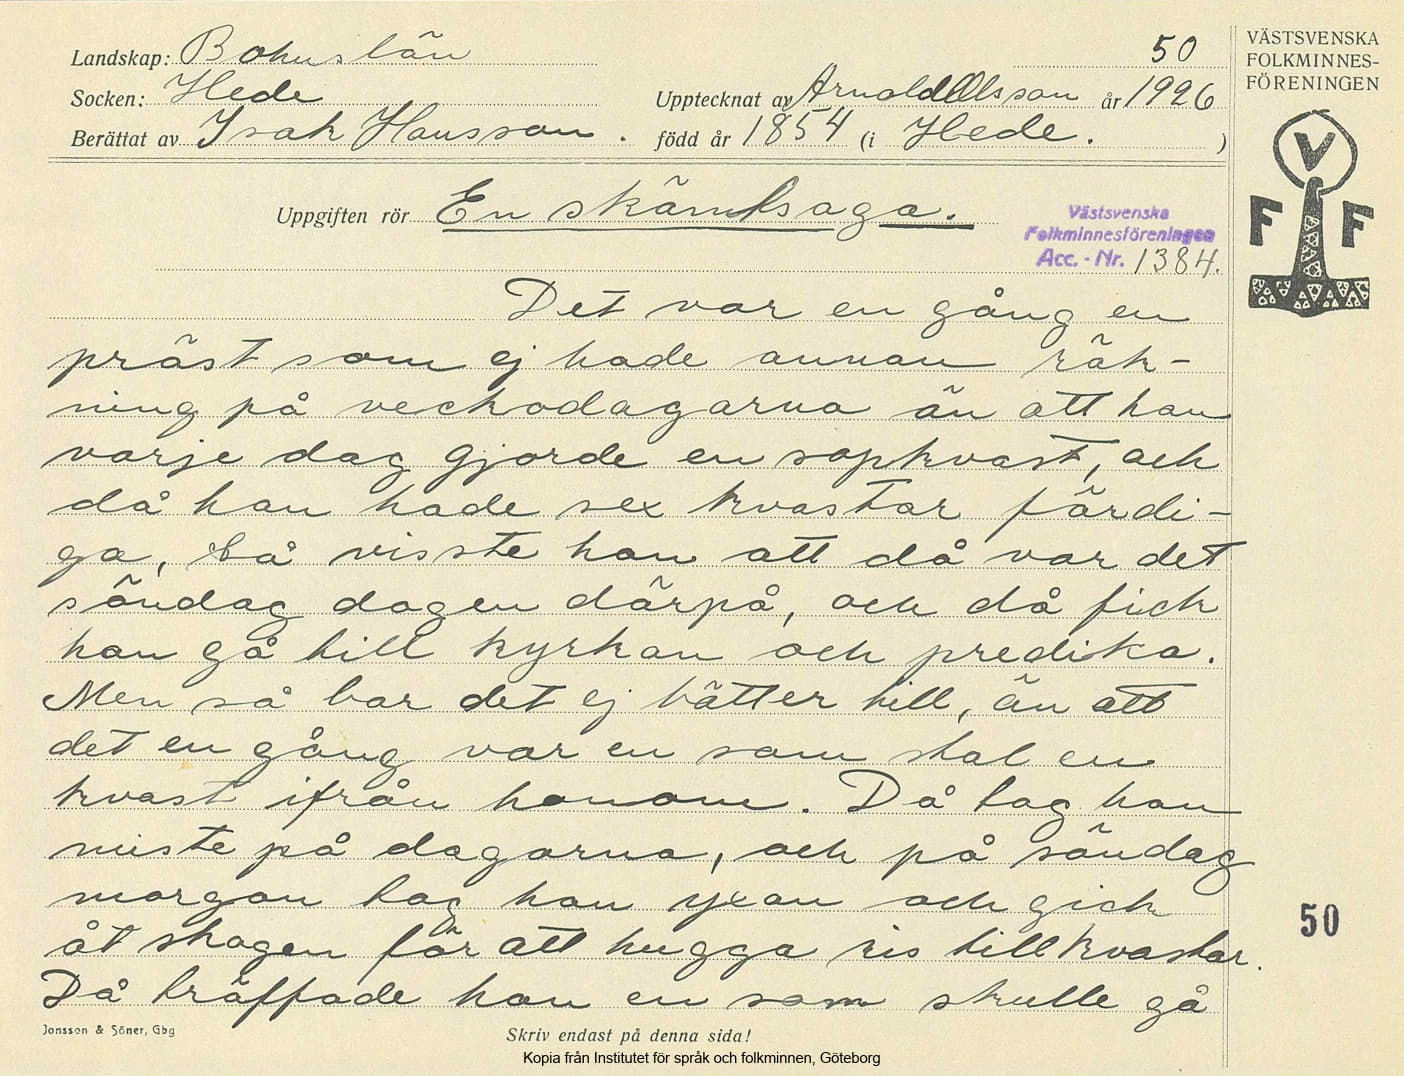 Landskap: Bohuslän
50
Socken: Hede
Upptecknat av Arnold Olsson år 1926
Berättat av Isak Hansson.
född år 1854 (i Hede. )
Uppgiften rör En skämtsaga.
Västsvenska
Folkminnesföreningen
Acc. - Nr. 1384.
VÄSTSVENSKA
FOLKMINNES-
FÖRENINGEN
V
F F
Det var en gång en
präst som ej hade annan räk-
ning på veckodagarna än att han
varje dag gjorde en sopkvast, och
då han hade sex kvastar färdi-
ga, så visste han att då var det
söndag dagen därpå, och då fick
han gå till kyrkan och predika.
Men så bar det ej bätter till, än att
det en gång var en som stal en
kvast ifrån honom. Då tog han
miste på dagarna, och på söndag
morgon tog han yxan och gick
åt skogen för att hugga ris till kvastar.
Då träffade han en som skulle gå
50
Jonsson & Söner, Gbg
Skriv endast på denna sida!
Kopia från Institutet för språk och folkminnen, Göteborg